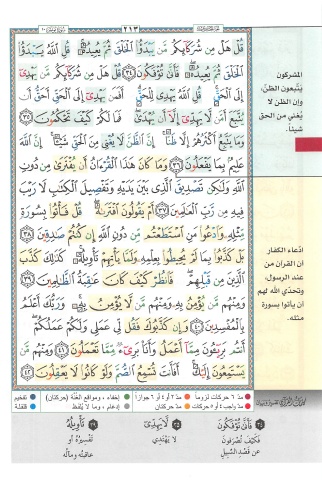 ٢١٣
قُلْ هَلْ مِن شُرَكَآئِكُم مَّن يَبْدَؤُا۟ ٱلْخَلْقَ ثُمَّ يُعِيدُهُۥ ۚ قُلِ ٱللَّهُ يَبْدَؤُا۟
ٱلْخَلْقَ ثُمَّ يُعِيدُهُۥ ۖ فَأَنَّىٰ تُؤْفَكُونَ ٣٤ قُلْ هَلْ مِن شُرَكَآئِكُم مَّن يَهْدِىٓ
إِلَى ٱلْحَقِّ ۚ قُلِ ٱللَّهُ يَهْدِى لِلْحَقِّ ۗ أَفَمَن يَهْدِىٓ إِلَى ٱلْحَقِّ أَحَقُّ أَن
يُتَّبَعَ أَمَّن لَّا يَهِدِّىٓ إِلَّآ أَن يُهْدَىٰ ۖ فَمَا لَكُمْ كَيْفَ تَحْكُمُونَ ٣٥
وَمَا يَتَّبِعُ أَكْثَرُهُمْ إِلَّا ظَنًّا ۚ إِنَّ ٱلظَّنَّ لَا يُغْنِى مِنَ ٱلْحَقِّ شَيْـًٔا ۚ إِنَّ ٱللَّهَ
عَلِيمٌۢ بِمَا يَفْعَلُونَ ٣٦ وَمَا كَانَ هَٰذَا ٱلْقُرْءَانُ أَن يُفْتَرَىٰ مِن دُونِ
ٱللَّهِ وَلَٰكِن تَصْدِيقَ ٱلَّذِى بَيْنَ يَدَيْهِ وَتَفْصِيلَ ٱلْكِتَٰبِ لَا رَيْبَ
فِيهِ مِن رَّبِّ ٱلْعَٰلَمِينَ ٣٧ أَمْ يَقُولُونَ ٱفْتَرَىٰهُ ۖ قُلْ فَأْتُوا۟ بِسُورَةٍ
مِّثْلِهِۦ وَٱدْعُوا۟ مَنِ ٱسْتَطَعْتُم مِّن دُونِ ٱللَّهِ إِن كُنتُمْ صَٰدِقِينَ ٣٨
بَلْ كَذَّبُوا۟ بِمَا لَمْ يُحِيطُوا۟ بِعِلْمِهِۦ وَلَمَّا يَأْتِهِمْ تَأْوِيلُهُۥ ۚ كَذَٰلِكَ كَذَّبَ
ٱلَّذِينَ مِن قَبْلِهِمْ ۖ فَٱنظُرْ كَيْفَ كَانَ عَٰقِبَةُ ٱلظَّٰلِمِينَ ٣٩
وَمِنْهُم مَّن يُؤْمِنُ بِهِۦ وَمِنْهُم مَّن لَّا يُؤْمِنُ بِهِۦ ۚ وَرَبُّكَ أَعْلَمُ
بِٱلْمُفْسِدِينَ ٤٠ وَإِن كَذَّبُوكَ فَقُل لِّى عَمَلِى وَلَكُمْ عَمَلُكُمْ ۖ
أَنتُم بَرِيٓـُٔونَ مِمَّآ أَعْمَلُ وَأَنَا۠ بَرِىٓءٌ مِّمَّا تَعْمَلُونَ ٤١ وَمِنْهُم مَّن
يَسْتَمِعُونَ إِلَيْكَ ۚ أَفَأَنتَ تُسْمِعُ ٱلصُّمَّ وَلَوْ كَانُوا۟ لَا يَعْقِلُونَ ٤٢
المشركون
يتّبعون الظنّ،
وإن الظن لا
يُغني من الحق
شيئاً.
ادّعاء الكفار
أن القرآن من
عند الرسول،
وتحدّي الله لهم
أن يأتوا بسورة
مثله.
مدّ ٦ حركات لزوماً مدّ ٢ أو ٤ أو ٦ جوازاً إخفاء، ومواقع الغُنّة (حركتان) تفخيم
مدّ واجب ٤ أو ٥ حركات مدّ حركتان إدغام، وما لا يُلفظ قلقلة
٣٤ فَأَنَّىٰ تُؤْفَكُونَ
فكيف تُصرَفون
عن قصد السبيل
٣٥ لَّا يَهِدِّىٓ
لا يهتدي
٣٩ تَأْوِيلُهُۥ
تفسيره أو
عاقبته ومآله